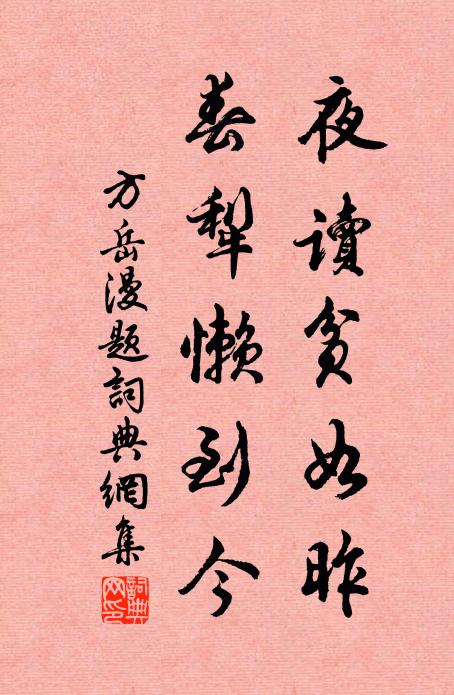 夜讀貧如昨
春犁懶到今
方岳漫題詞典網集
詞典網印